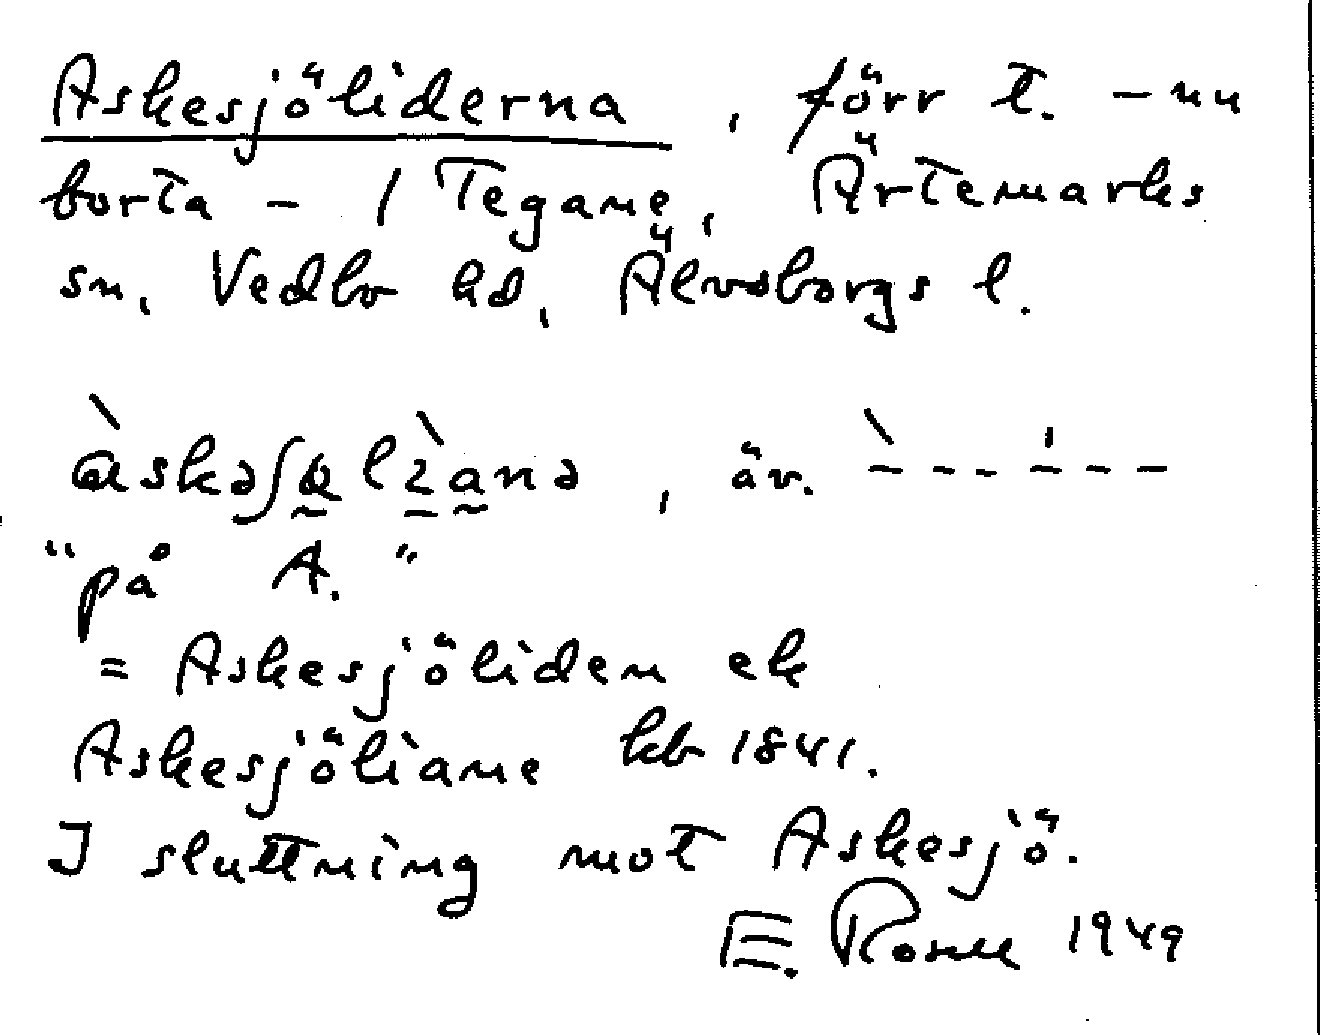 Askesjöliderna, förr t. – nu
borta – / Tegane, Ärtemarks
sn, Vedbo hd, Älvsborgs l.
, äv. `– – – '– – –
"på A."
= Askesjöliden el
Askesjöliane kb 1841.
I sluttning mot Askesjö.
E. 1949